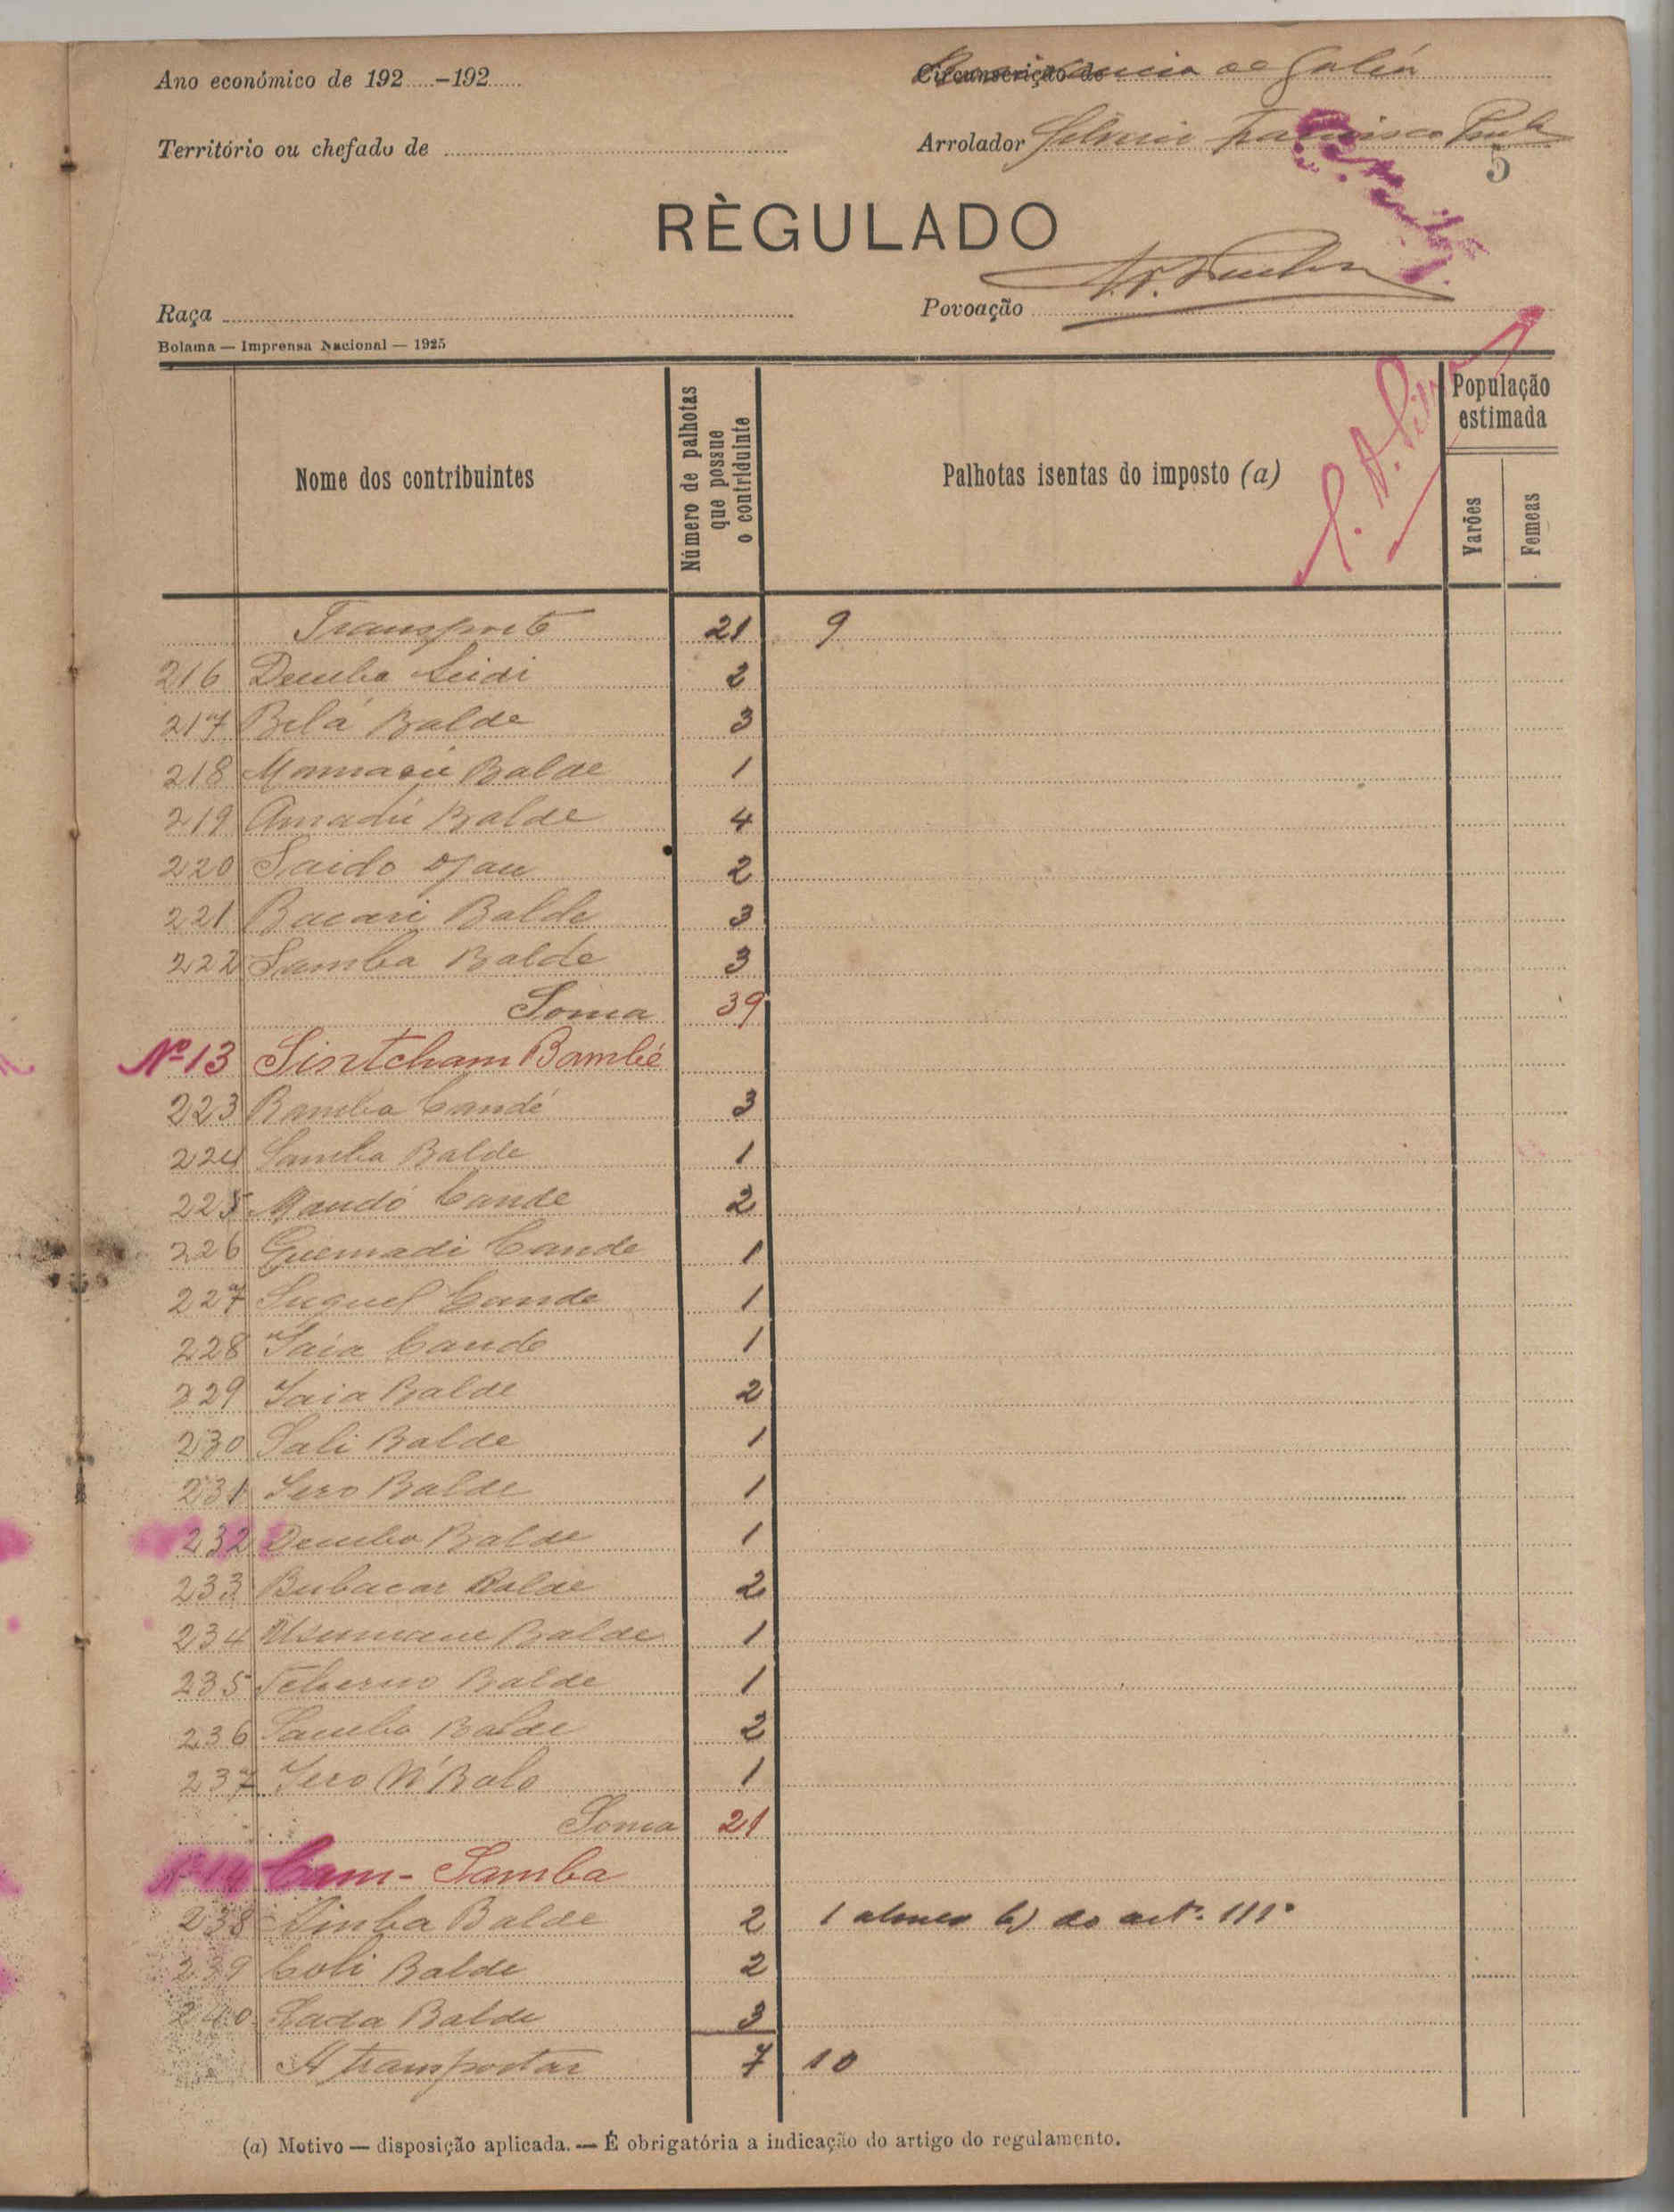 Ano económico de 192.....-192......
Circunscrição de
de Galén
Território ou chefado de
Arrolador Francisco
5
RÈGULADO
Raça
Povoação
Bolama — Imprensa Nacional — 1925
Nome dos contribuintes
Número de palhotas que possue o contriduinte
Palhotas isentas do imposto (a)
População estimada
Varões
Femeas
Transporte 21 9
216 Demba Seidi 2
217 Belá Balde 3
218 Mamadú Balde 1
219 Amadú Balde 4
220 Saido Djau 2
221 Bacari Balde 3
222 Samba Balde 3
Soma 39
Nº 13 Sintcham Bambé
223 Bamba Candé 3
224 Samba Balde 1
225 Mandó Cande 2
226 Guemadi Cande 1
227 Suguel Cande 1
228 Iaia Cande 1
229 Iaia Balde 2
230 Sali Balde 1
231 Iero Balde 1
232 Demba Balde 1
233 Bubacar Balde 2
234 Usumane Balde 1
235 Tcherno Balde 1
236 Samba Balde 2
237 Iero N'Balo 1
Soma 21
Nº 14 Cam-Samba
238 Balde 2 1 alinea b) do art.º 111º
239 Coli Balde 2
240 Sada Balde 3
A transportar 7 10
(a) Motivo — disposição aplicada. — É obrigatória a indicação do artigo do regulamento.